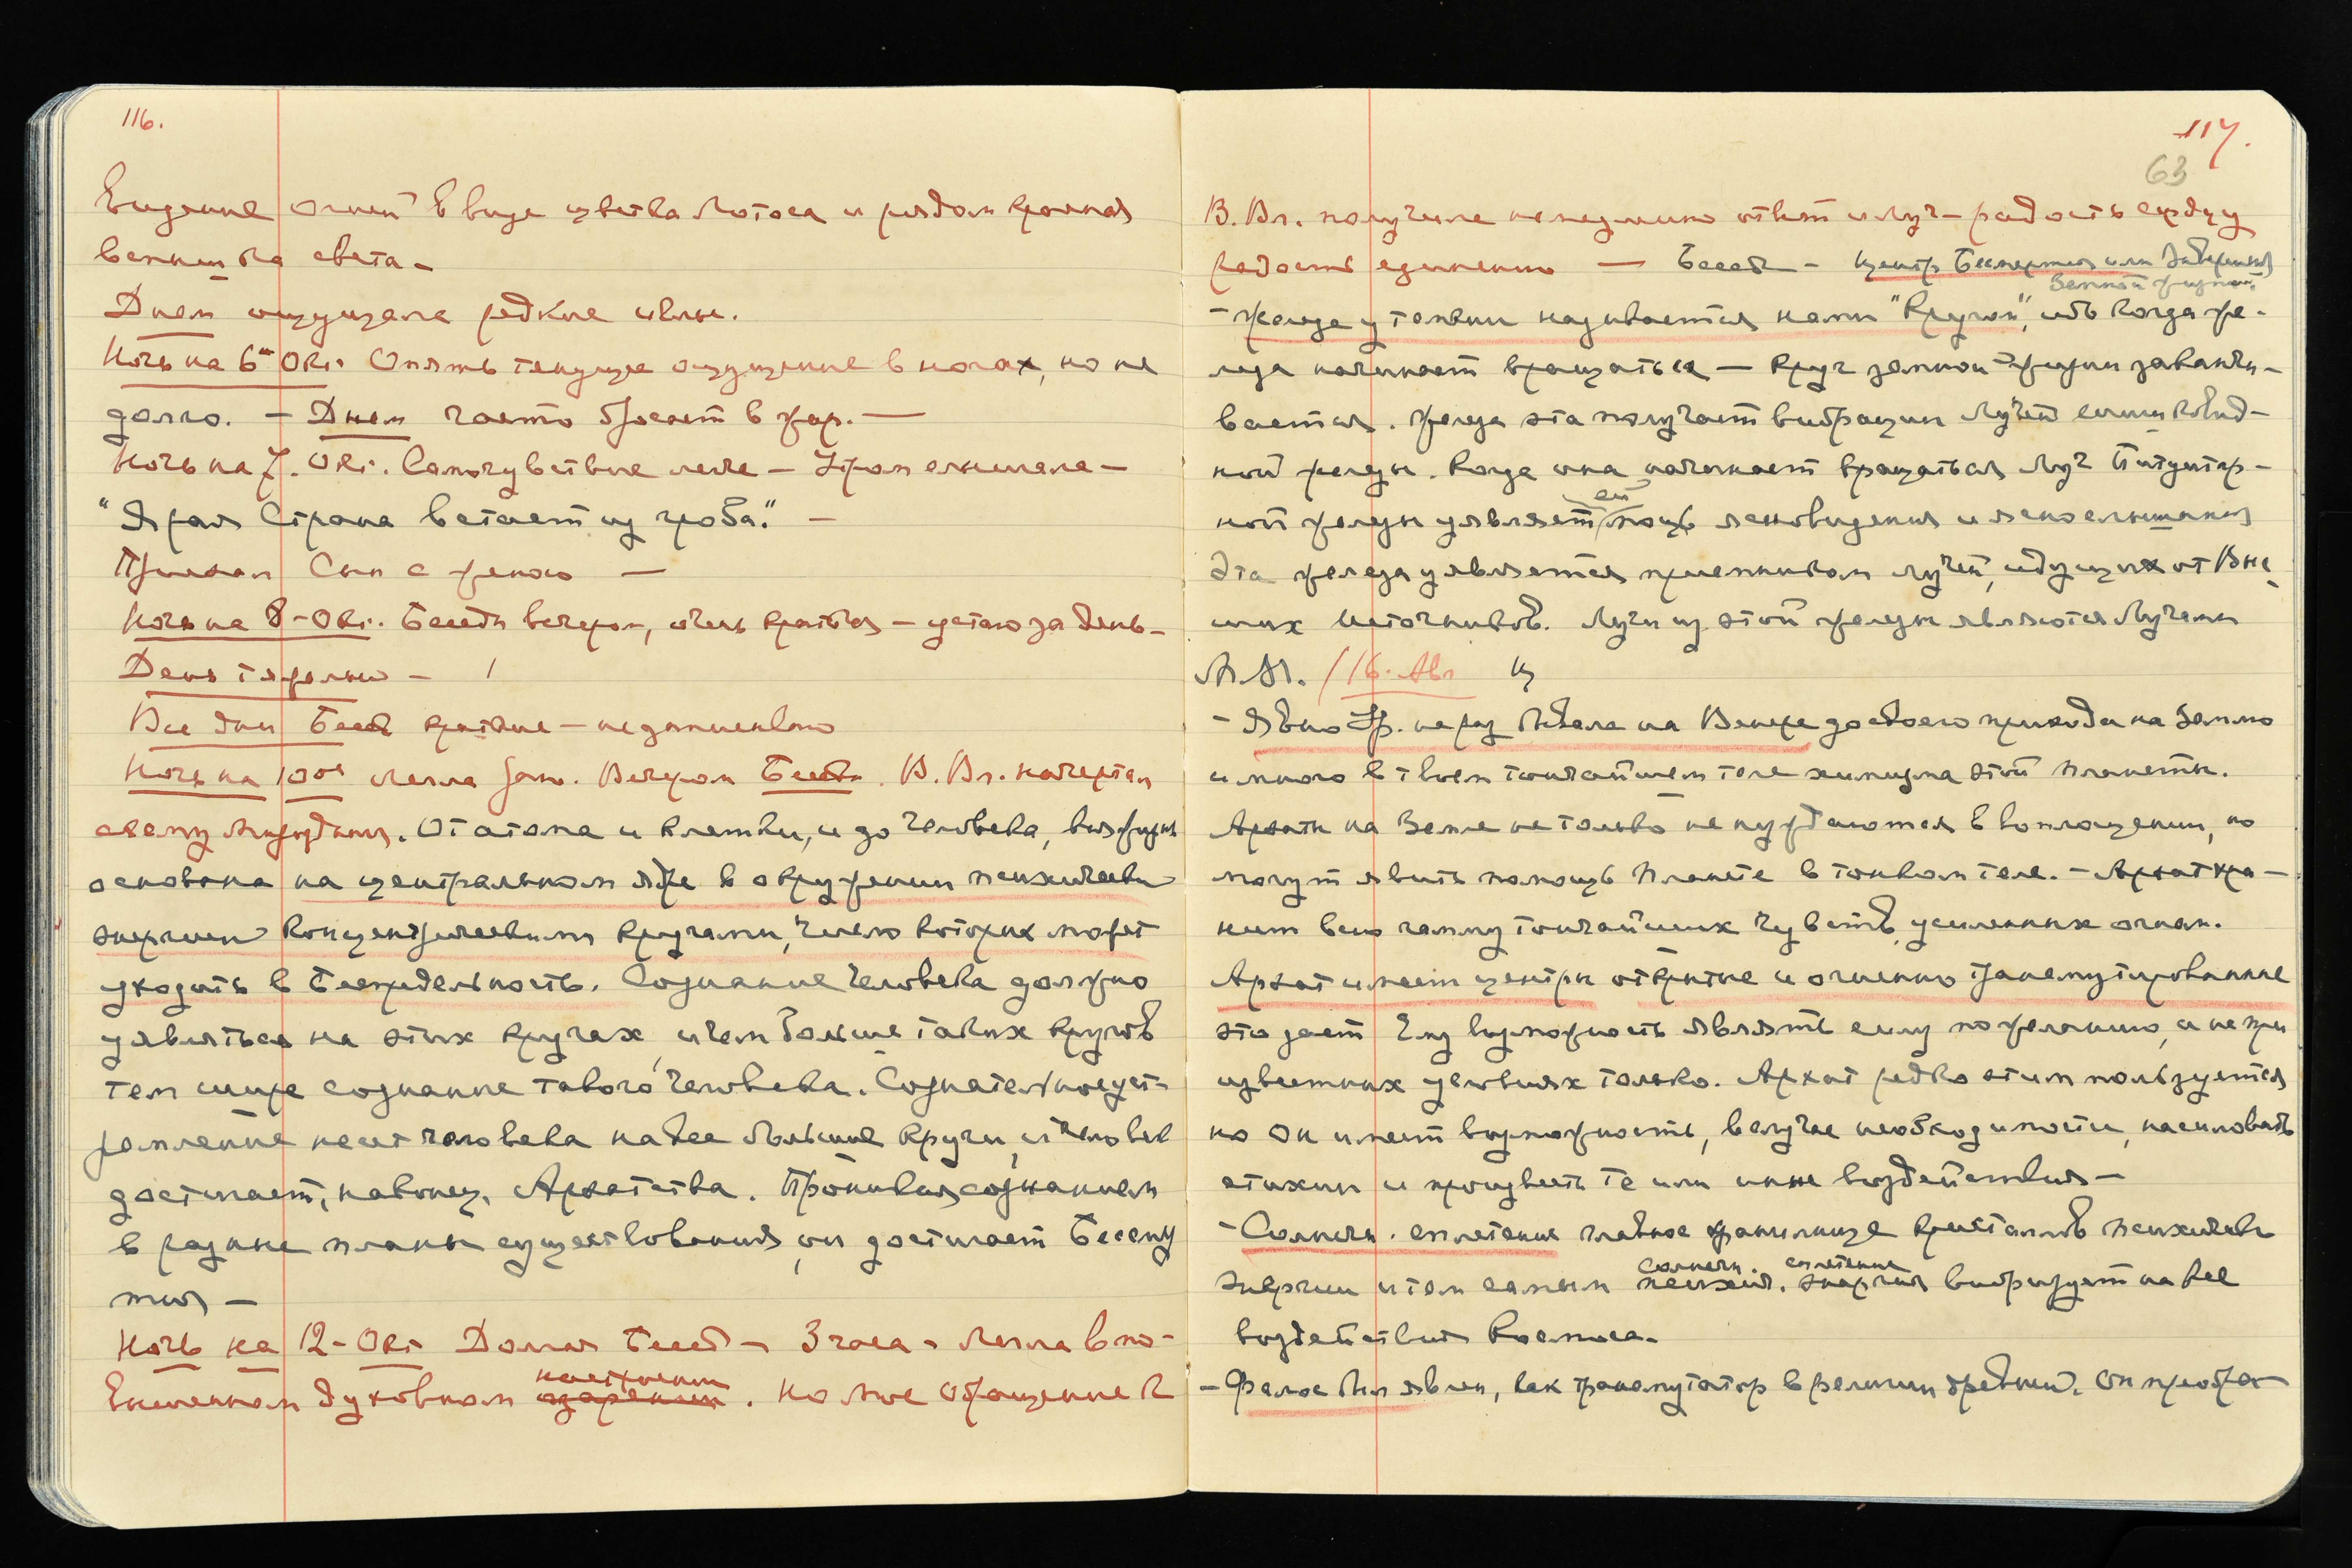 116.
Видение огней в виде цветка Лотоса и рядом крупная
вспышка света –
Днем ощущала редкие иглы.
Ночь на 6ое Окт. Опять текущее ощущение в ногах, но не
долго. – Днем часто бросает в жар. –
Ночь на 7. Окт. Самочувствие легче – Утром слышала –
"Ярая Страна встает из гроба." –
Приехал Сын с женою –
Ночь на 8 – Окт. Беседы вечером, очень краткая – устаю за день –
День тяжелый –
Все дни Бесед краткие –
Ночь на 10ое легла рано. Вечером Беседа. В. Вл. начертал
схему Мироздания. От атома и клетки, и до человека, вся жизнь
основана на центральном ядре в окружении психической
энергии концентрическими кругами, число которых может
уходить в Беспредельность. Сознание человека должно
уявляться на этих кругах, и чем больше таких кругов
тем шире сознание такого человека. Сознательное уст-
ремление несет человека на все большие круги, и человек
достигает, наконец, Архатства. Проникая сознанием
в разные планы существования, он достигает Бессмер
тия –
Ночь на 12 – Окт Долгая Беседа – 3 часа – Легла в по-
вышенном духовном настроении озарении. На мое обращение к
117.
63
В. Вл. получила немедленно ответ и луч – радость сердцу
радость единению — Беседа – Центр Бессмертия или Завершения
Земной жизни.
– Железа у темени называется нами "Кругом", ибо когда же-
леза начинает вращаться – круг земной жизни заканчи-
вается. Железа эта получает вибрации Лучей шишковид-
ной железы. Когда она начинает вращаться Луч Питуитар-
ной железы уявляет ей мощь ясновидения и яснослышания
Эта железа уявляется приемником лучей, идущих от Вне
ших источников. Лучи из этой железы являются Лучами
М. М. / 16. Авг
– Явно Ур. не раз жила на Венере до своего прихода на Землю
и много в твоем тончайшем теле химизма этой планеты.
Архаты на Земле не только не нуждаются в воплощении, но
могут явить помощь Планете в тонком теле. – Архат хра-
нит всю гамму тончайших чувств, усиленных огнем.
Архат имеет центры открытые и огненно трансмутированные
это дает Ему возможность являть силу по желанию, и не при
известных условиях только. Архат редко этим пользуется
но Он имеет возможность, в случае необходимости, насиловать
стихии и произвести те или иные воздействия –
– Солнечн. сплетение главное хранилище кристаллов психической
энергии и тем самым солнечн. сплетение психич. энергия вибрирует на все
воздействия Космоса.
– Фалос явлен, как трансмутатор в религии древней. Он преобра